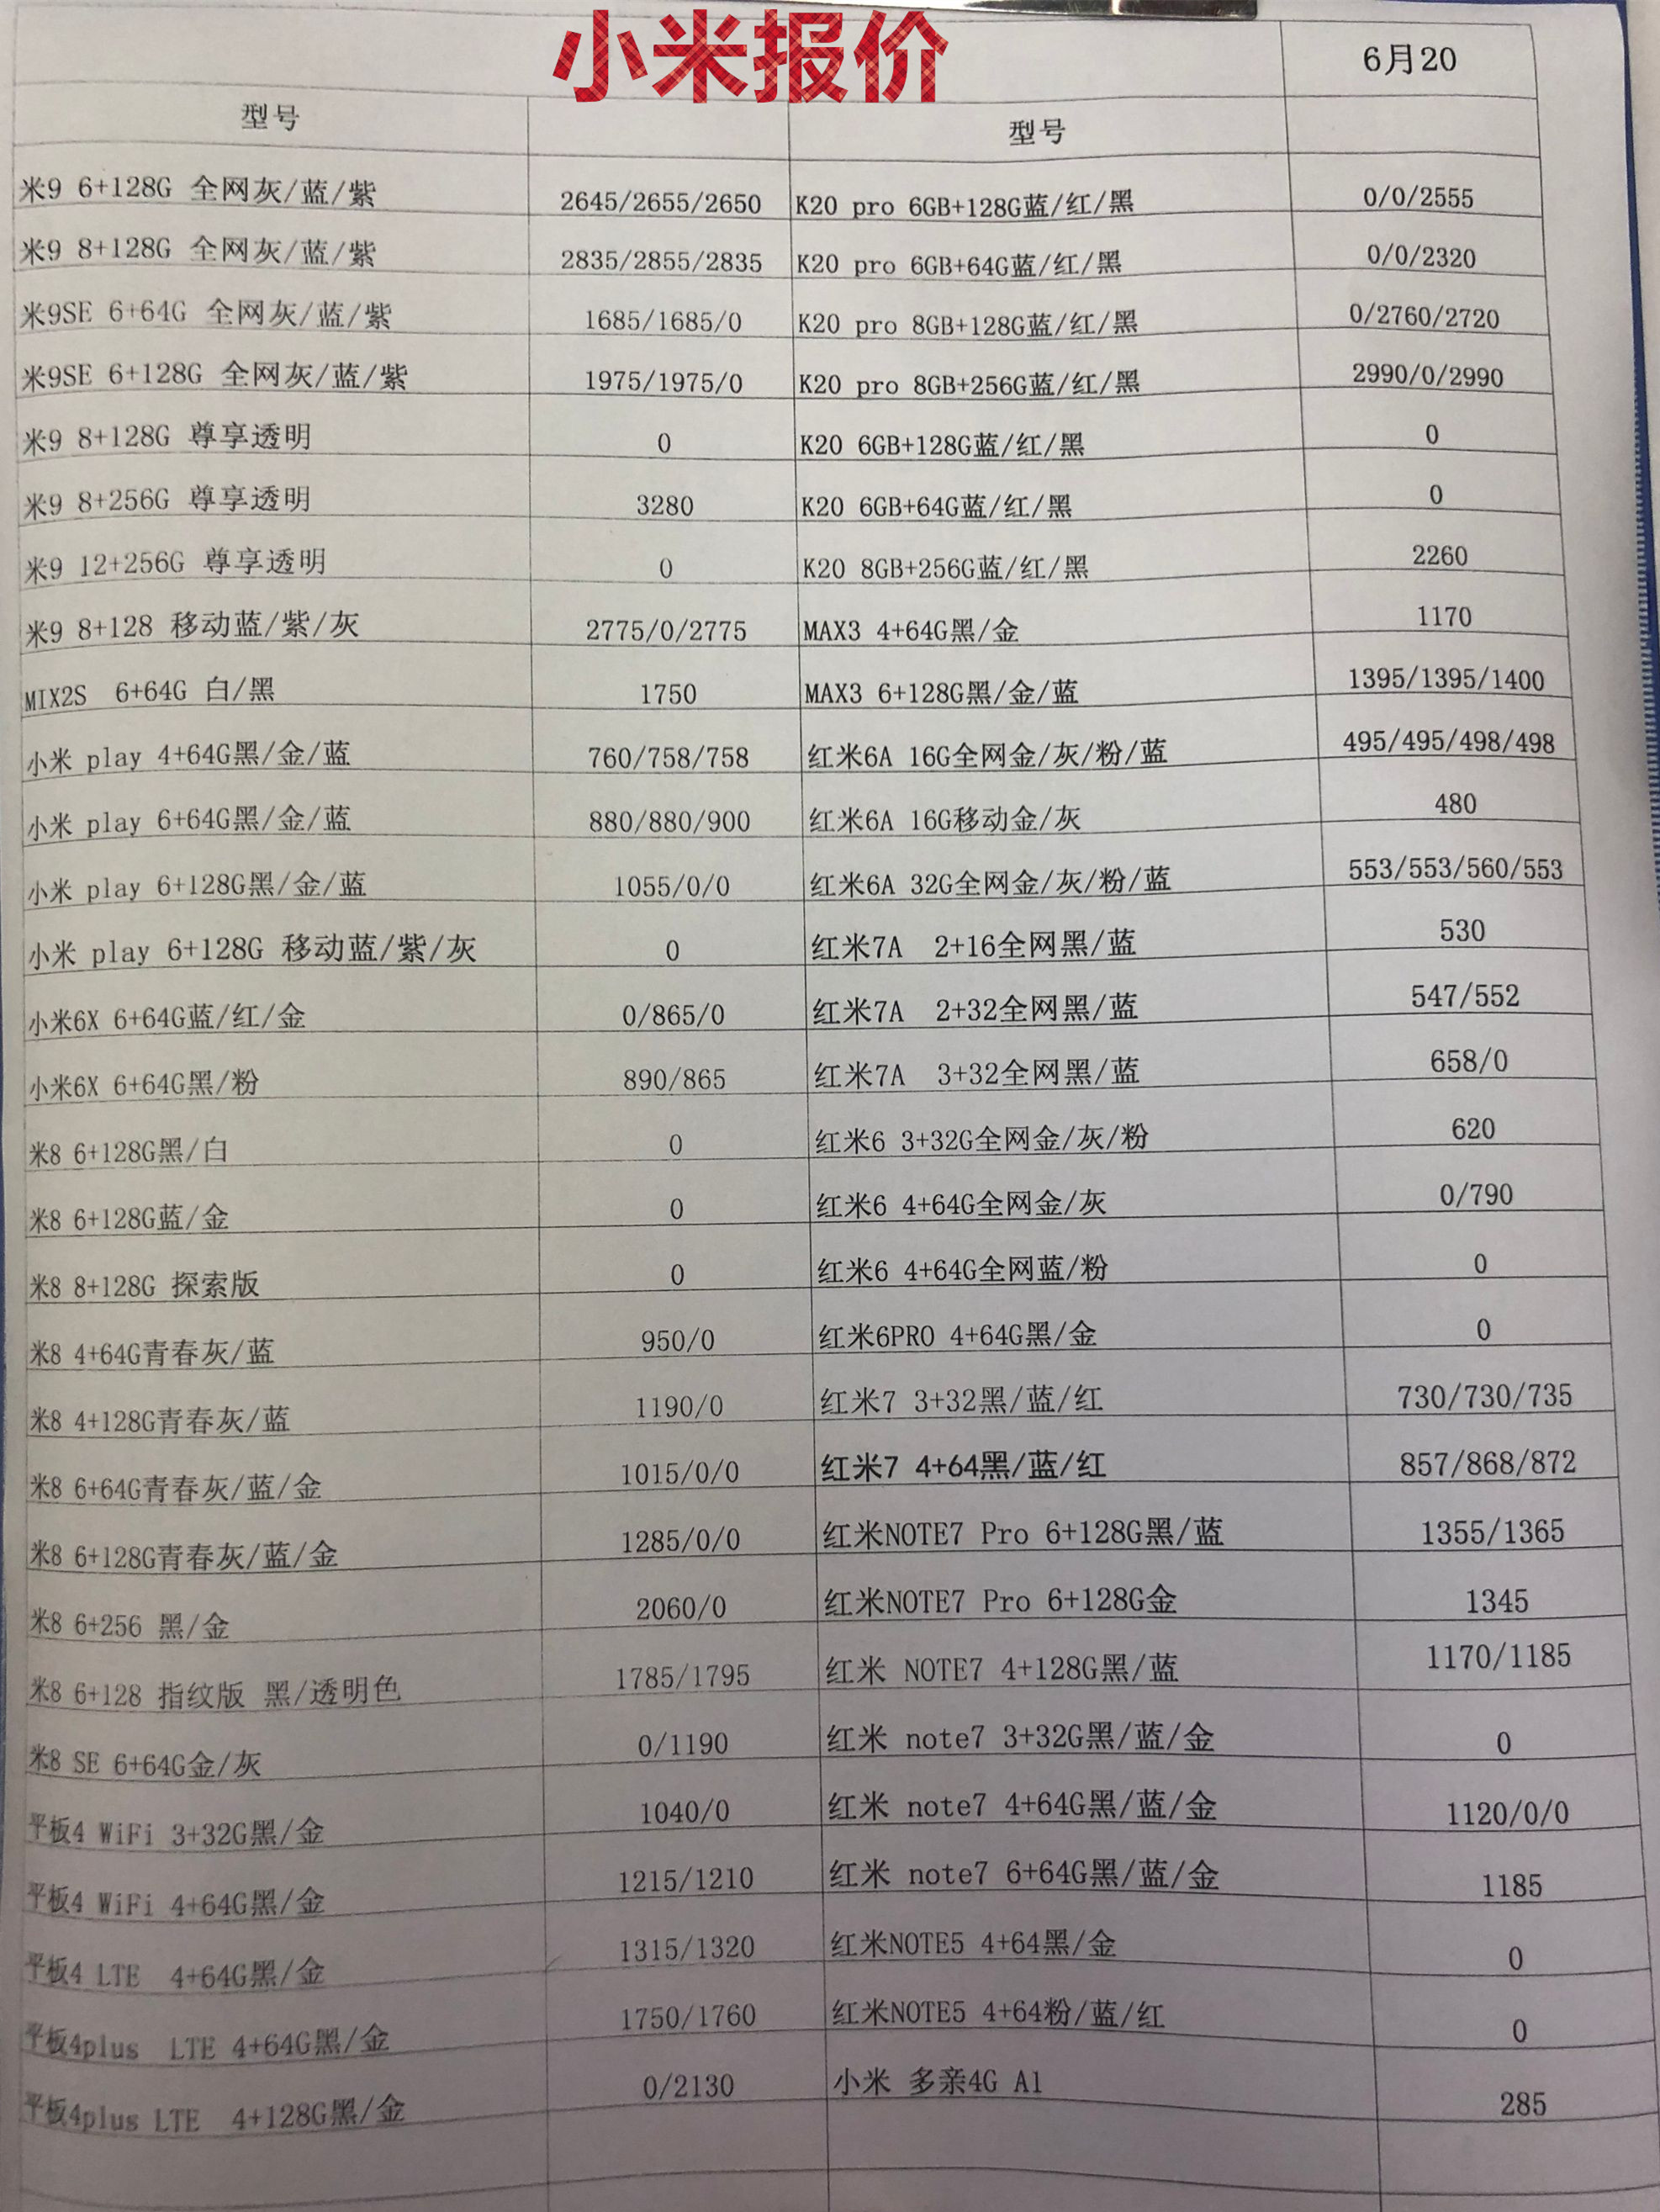 小米报价
6月20
型号 型号
米9 6+128G 全网灰/蓝/紫 2645/2655/2650 K20 pro 6GB+128G蓝/红/黑 0/0/2555
米9 8+128G 全网灰/蓝/紫 2835/2855/2835 K20 pro 6GB+64G蓝/红/黑 0/0/2320
米9SE 6+64G 全网灰/蓝/紫 1685/1685/0 K20 pro 8GB+128G蓝/红/黑 0/2760/2720
米9SE 6+128G 全网灰/蓝/紫 1975/1975/0 K20 pro 8GB+256G蓝/红/黑 2990/0/2990
米9 8+128G 尊享透明 0 K20 6GB+128G蓝/红/黑 0
米9 8+256G 尊享透明 3280 K20 6GB+64G蓝/红/黑 0
米9 12+256G 尊享透明 0 K20 8GB+256G蓝/红/黑 2260
米9 8+128 移动蓝/紫/灰 2775/0/2775 MAX3 4+64G黑/金 1170
MIX2S 6+64G 白/黑 1750 MAX3 6+128G黑/金/蓝 1395/1395/1400
小米 play 4+64G黑/金/蓝 760/758/758 红米6A 16G全网金/灰/粉/蓝 495/495/498/498
小米 play 6+64G黑/金/蓝 880/880/900 红米6A 16G移动金/灰 480
小米 play 6+128G黑/金/蓝 1055/0/0 红米6A 32G全网金/灰/粉/蓝 553/553/560/553
小米 play 6+128G 移动蓝/紫/灰 0 红米7A 2+16全网黑/蓝 530
小米6X 6+64G蓝/红/金 0/865/0 红米7A 2+32全网黑/蓝 547/552
小米6X 6+64G黑/粉 890/865 红米7A 3+32全网黑/蓝 658/0
米8 6+128G黑/白 0 红米6 3+32G全网金/灰/粉 620
米8 6+128G蓝/金 0 红米6 4+64G全网金/灰 0/790
米8 8+128G 探索版 0 红米6 4+64G全网蓝/粉 0
米8 4+64G青春灰/蓝 950/0 红米6PRO 4+64G黑/金 0
米8 4+128G青春灰/蓝 1190/0 红米7 3+32黑/蓝/红 730/730/735
米8 6+64G青春灰/蓝/金 1015/0/0 红米7 4+64黑/蓝/红 857/868/872
米8 6+128G青春灰/蓝/金 1285/0/0 红米NOTE7 Pro 6+128G黑/蓝 1355/1365
米8 6+256 黑/金 2060/0 红米NOTE7 Pro 6+128G金 1345
米8 6+128 指纹版 黑/透明色 1785/1795 红米 NOTE7 4+128G黑/蓝 1170/1185
米8 SE 6+64G金/灰 0/1190 红米 note7 3+32G黑/蓝/金 0
平板4 WiFi 3+32G黑/金 1040/0 红米 note7 4+64G黑/蓝/金 1120/0/0
平板4 WiFi 4+64G黑/金 1215/1210 红米 note7 6+64G黑/蓝/金 1185
平板4 LTE 4+64G黑/金 1315/1320 红米NOTE5 4+64黑/金 0
平板4plus LTE 4+64G黑/金 1750/1760 红米NOTE5 4+64粉/蓝/红 0
平板4plus LTE 4+128G黑/金 0/2130 小米 多亲4G A1 285